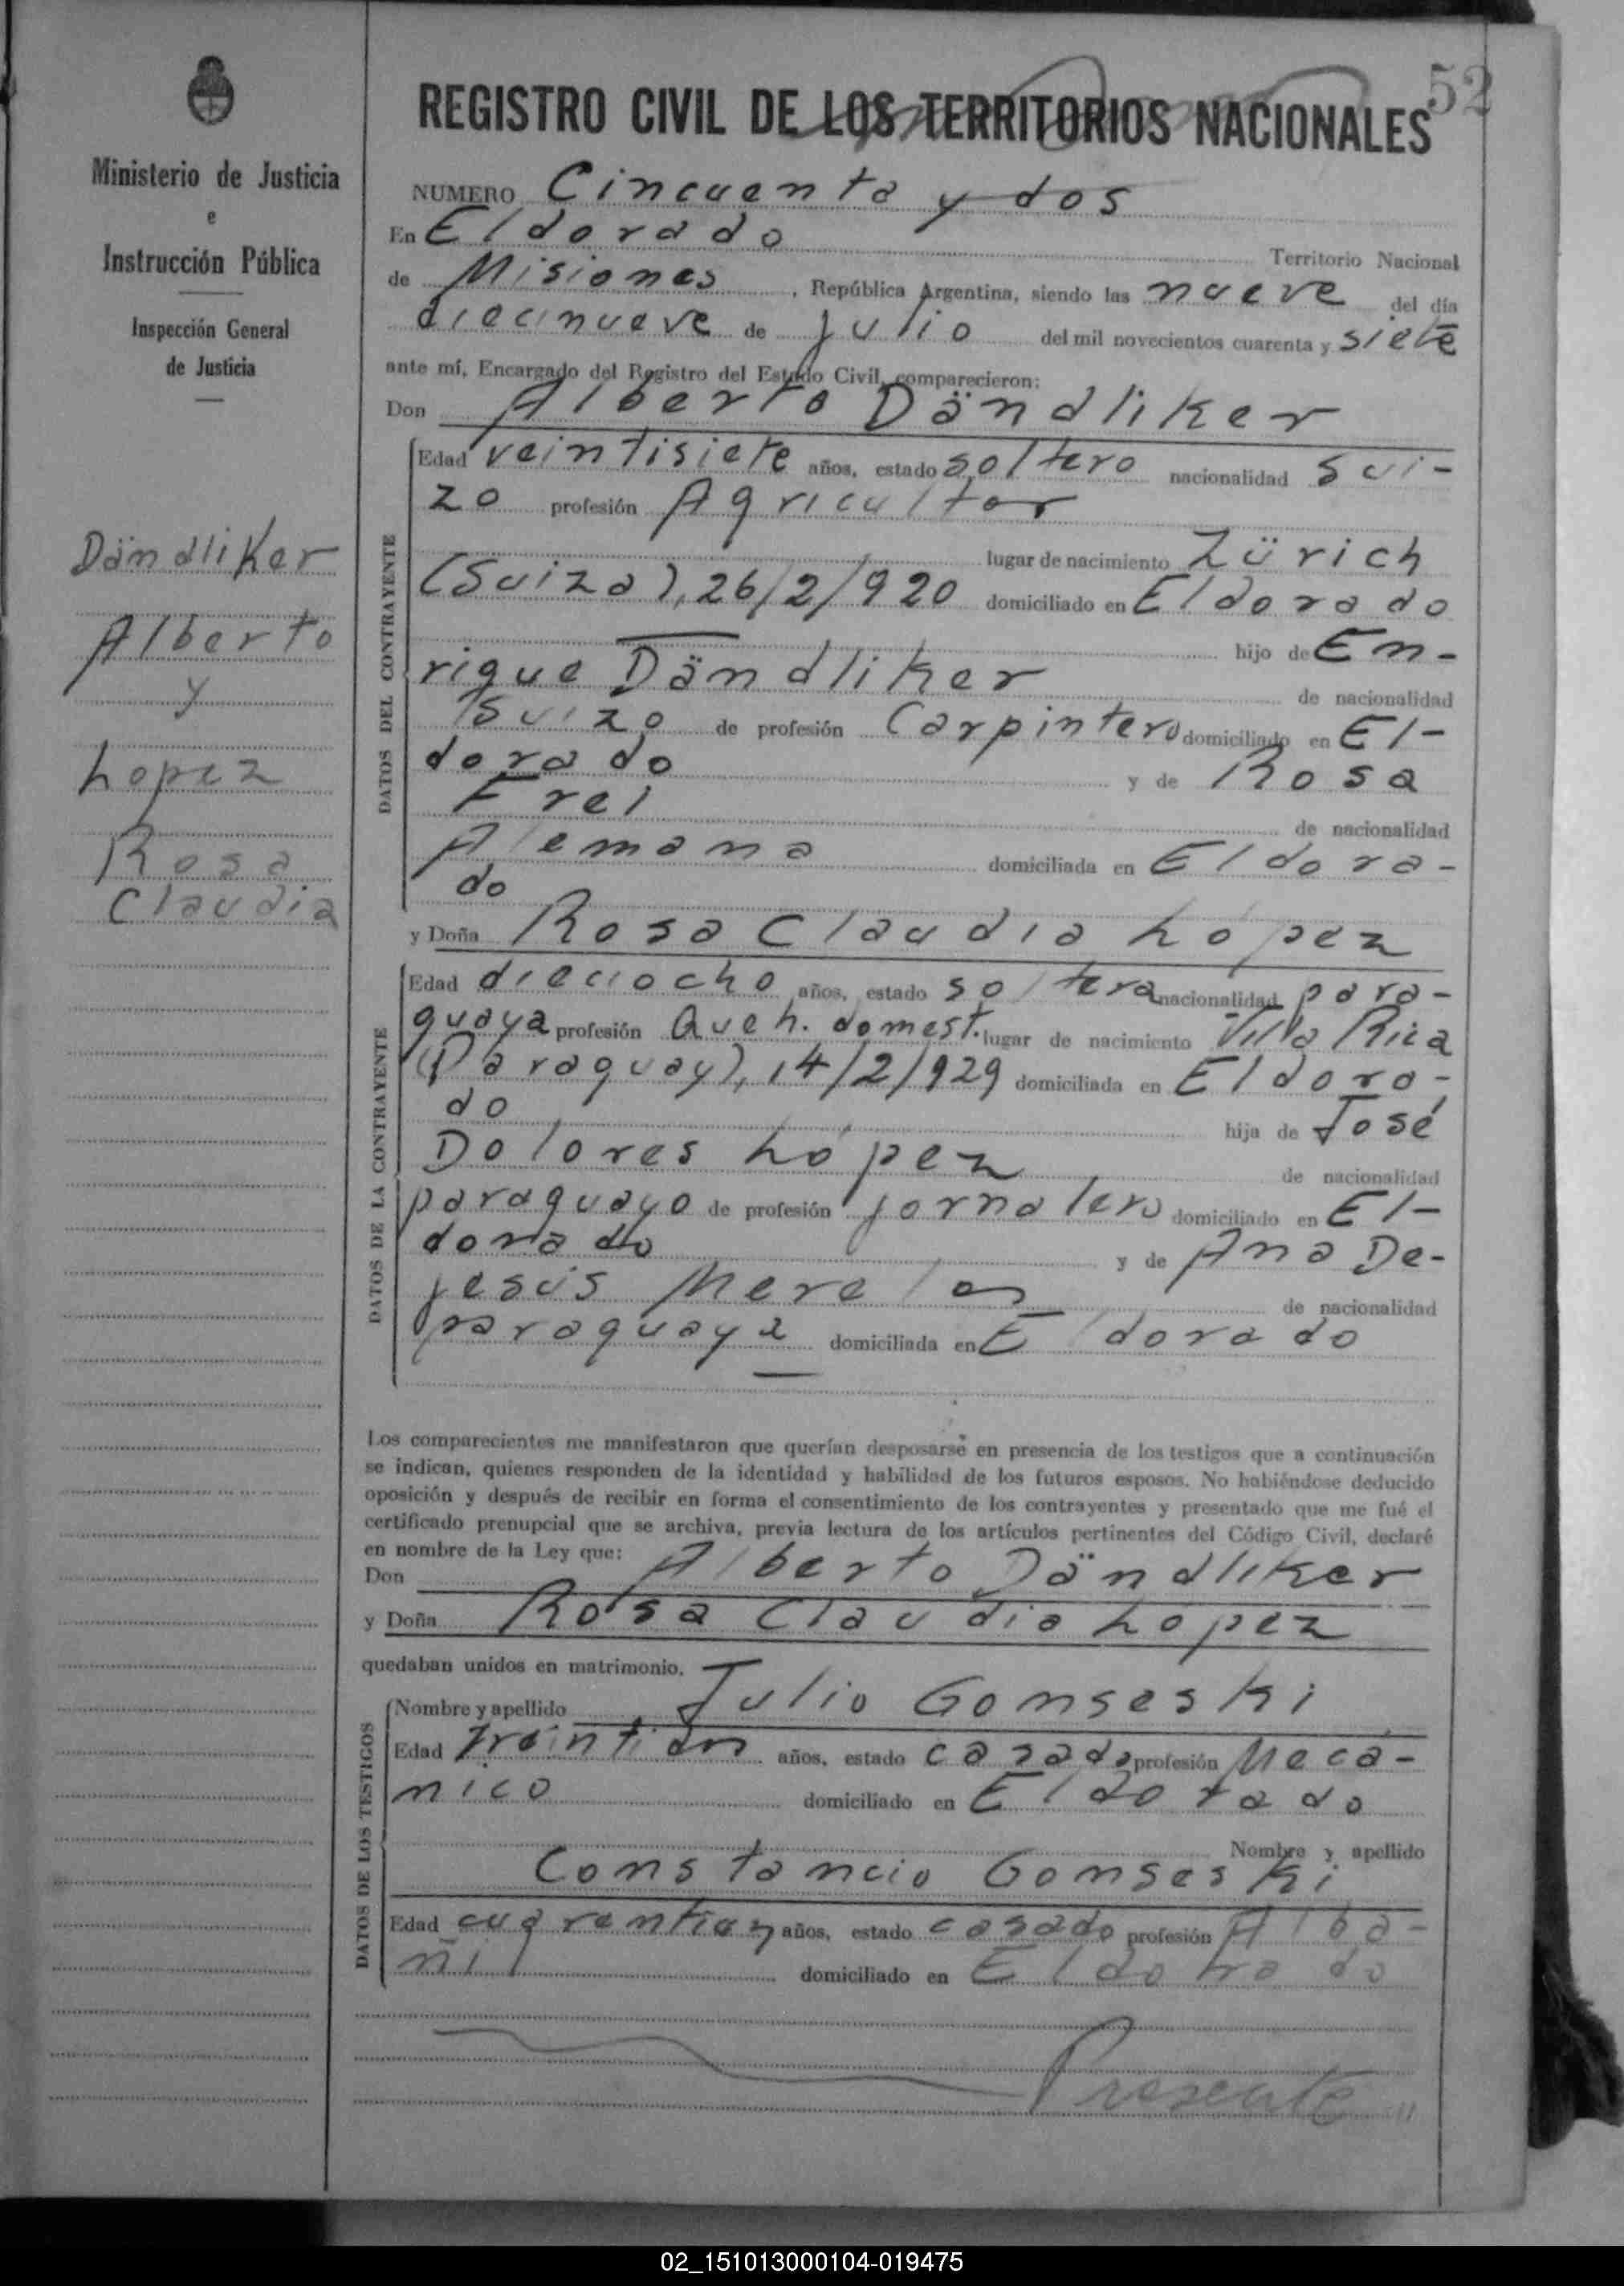 52
Ministerio de Justicia
e
Instrucción Pública
Inspección General
de Justicia
Dändliker
Alberto
y
Lopez
Rosa
Claudia
REGISTRO CIVIL DE LOS TERRITORIOS NACIONALES
NUMERO Cincuenta y dos
En Eldorado Territorio Nacional
de Misiones, República Argentina, siendo las nueve del día
diecinueve de julio del mil novecientos cuarenta y siete
ante mí, Encargado del Registro del Estado Civil, comparecieron:
Don Alberto Dändliker
DATOS DEL CONTRAYENTE
Edad veintisiete años, estado soltero nacionalidad sui-
zo profesión Agricultor
lugar de nacimiento Zürich
(Suiza), 26/2/920 domiciliado en Eldorado
hijo de En-
rique Dändliker de nacionalidad
Suizo de profesión Carpintero domiciliado en El-
dorado y de Rosa
Frei de nacionalidad
Alemana domiciliada en Eldora-
do
y Doña Rosa Claudia López
DATOS DE LA CONTRAYENTE
Edad dieciocho años, estado soltera nacionalidad para-
guaya profesión Queh. domest. lugar de nacimiento Villa Rica
(Paraguay), 14/2/929 domiciliada en Eldora-
do
hija de José
Dolores López de nacionalidad
paraguayo de profesión jornalero domiciliado en El-
dorado y de Ana De-
jesús Mereles de nacionalidad
paraguaya domiciliada en Eldorado
Los comparecientes me manifestaron que querían desposarse en presencia de los testigos que a continuación
se indican, quienes responden de la identidad y habilidad de los futuros esposos. No habiéndose deducido
oposición y después de recibir en forma el consentimiento de los contrayentes y presentado que me fué el
certificado prenupcial que se archiva, previa lectura de los artículos pertinentes del Código Civil, declaré
en nombre de la Ley que:
Don Alberto Dändliker
y Doña Rosa Claudia López
quedaban unidos en matrimonio.
DATOS DE LOS TESTIGOS
Nombre y apellido Julio Gonseski
Edad treintidos años, estado casado profesión Mecá-
nico domiciliado en Eldorado
Nombre y apellido
Constancio Gonseski
Edad años, estado casado profesión Alba-
ñil domiciliado en Eldorado
Presente
02_151013000104-019475